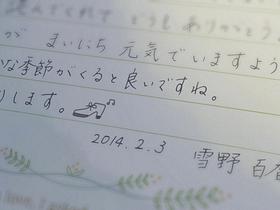 読んでくれて どうも ありがとう
が まいにち 元気でいますよう
な季節がくると良いですね。
します。
2014.2.3 雪野 百香